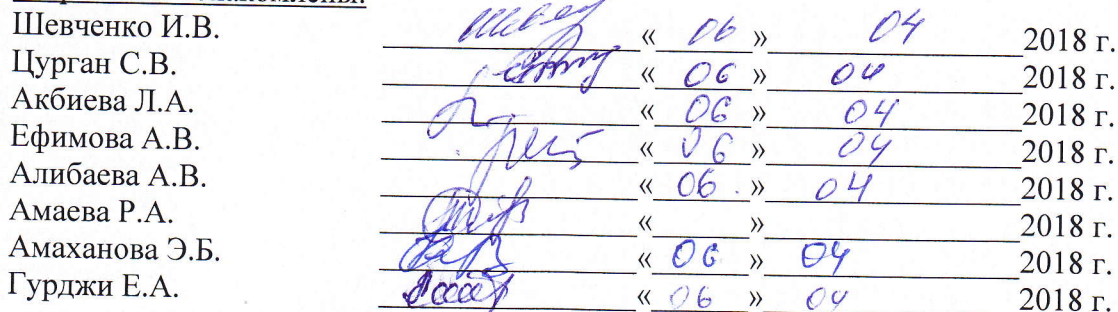 Шевченко И.В. «06» 04 2018 г.
Цурган С.В. «06» 04 2018 г.
Акбиева Л.А. «06» 04 2018 г.
Ефимова А.В. «06» 04 2018 г.
Алибаева А.В. «06.» 04 2018 г.
Амаева Р.А. « » 2018 г.
Амаханова Э.Б. «06» 04 2018 г.
Гурджи Е.А. «06» 04 2018 г.